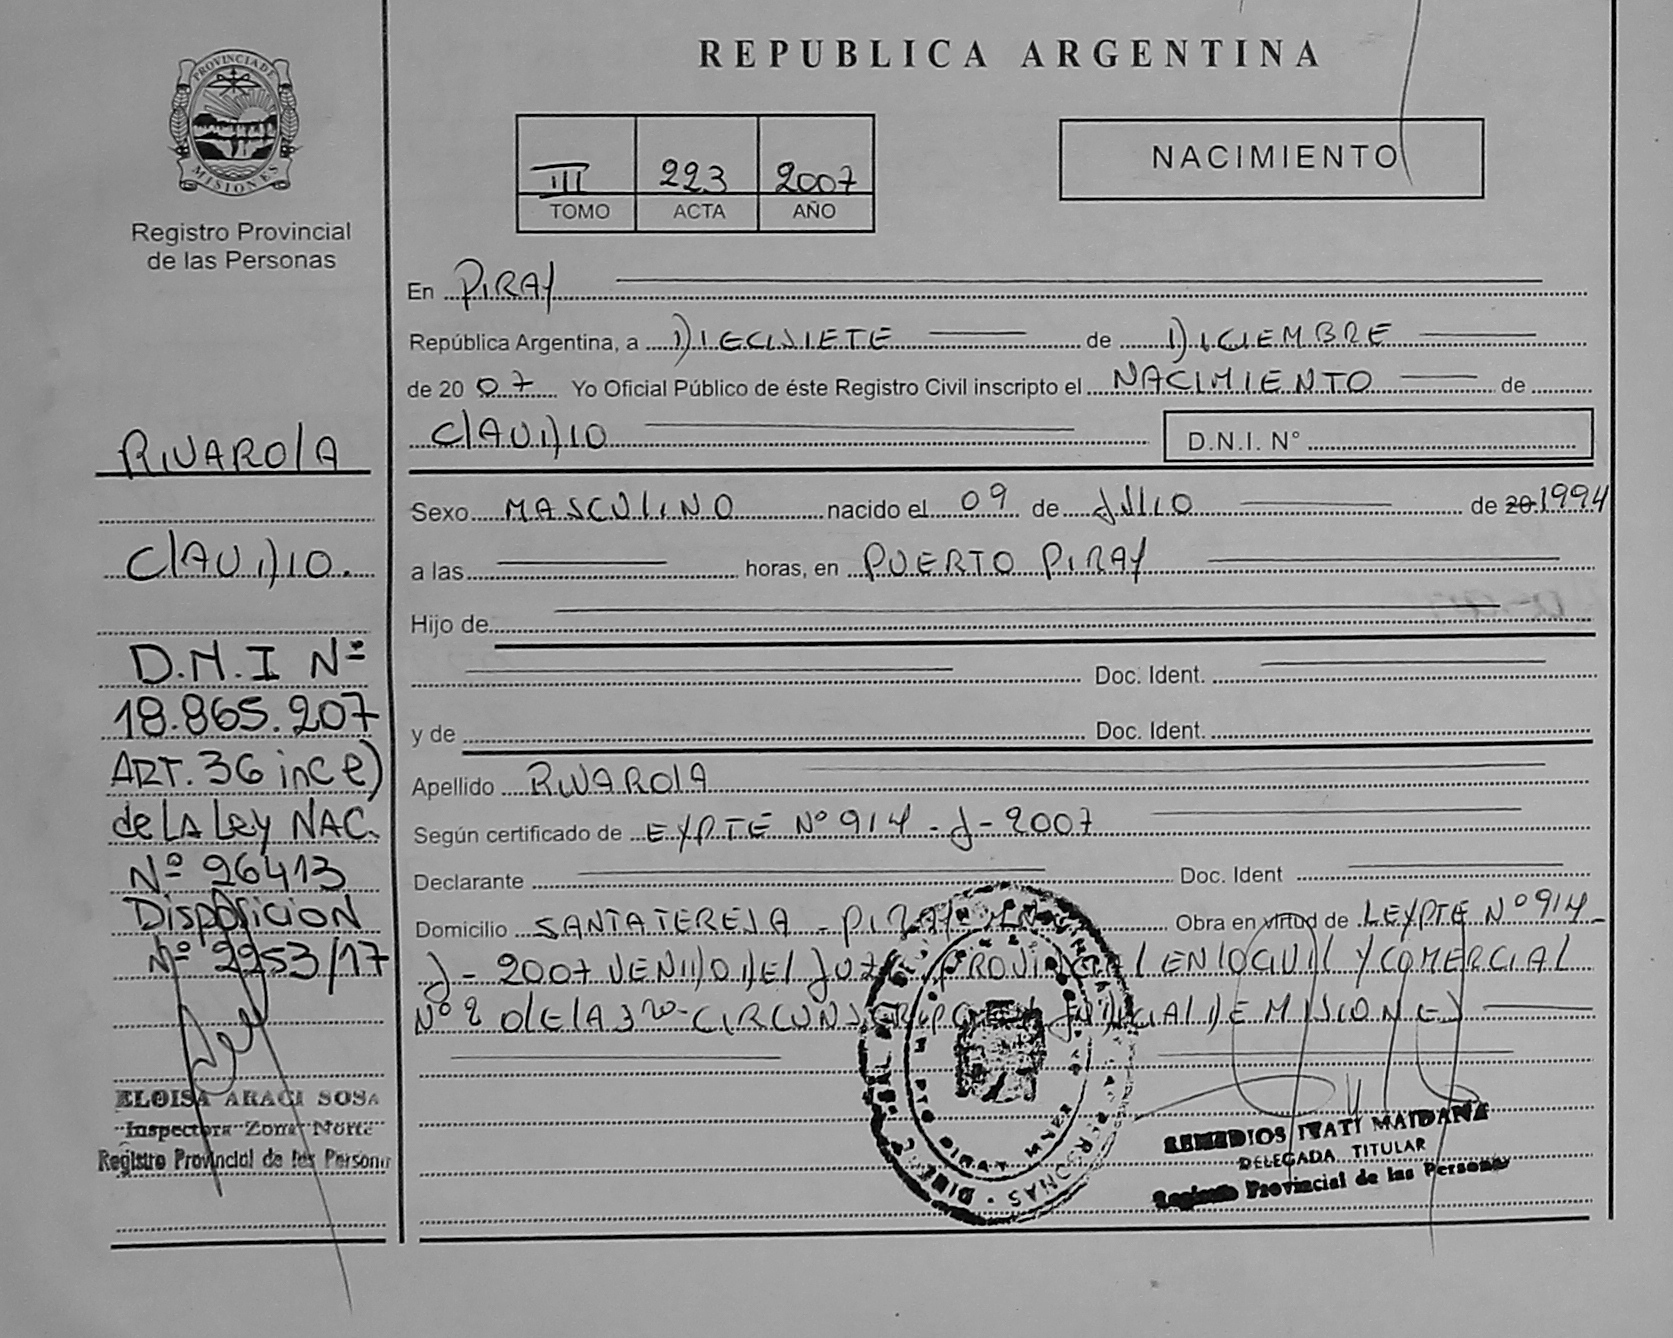 REPUBLICA ARGENTINA
PROVINCIA DE
MISIONES
Registro Provincial
de las Personas
III 223 2007
TOMO ACTA AÑO
NACIMIENTO
En PIRAY
República Argentina, a DIECISIETE de DICIEMBRE
de 20 07 Yo Oficial Público de éste Registro Civil inscripto el NACIMIENTO de
CLAUDIO D.N.I. N°
Sexo MASCULINO nacido el 09 de JULIO de 20 1994
a las horas, en PUERTO PIRAY
Hijo de
Doc. Ident.
y de Doc. Ident.
Apellido RIVAROLA
Según certificado de EXPTE Nº 914 - J - 2007
Declarante Doc. Ident
Domicilio SANTA TERESA - PIRAY MNES Obra en virtud de EXPTE Nº 914 -
J - 2007 VENIDO DEL PROVINCIAL EN LO CIVIL Y COMERCIAL
Nº 2 DE LA 3 CIRCUNSCRIPCION JUDICIAL DE MISIONES
REMEDIOS ITATI MAIDANA
DELEGADA TITULAR
Registro Provincial de las Personas
RIVAROLA
CLAUDIO.
D.N.I Nº
18.865.207
ART. 36 inc e)
de LA Ley NAC.
Nº 26413
Disposicion
Nº 2953/17
ELOISA ARACI SOSA
Inspectora Zona Norte
Registro Provincial de las Persona